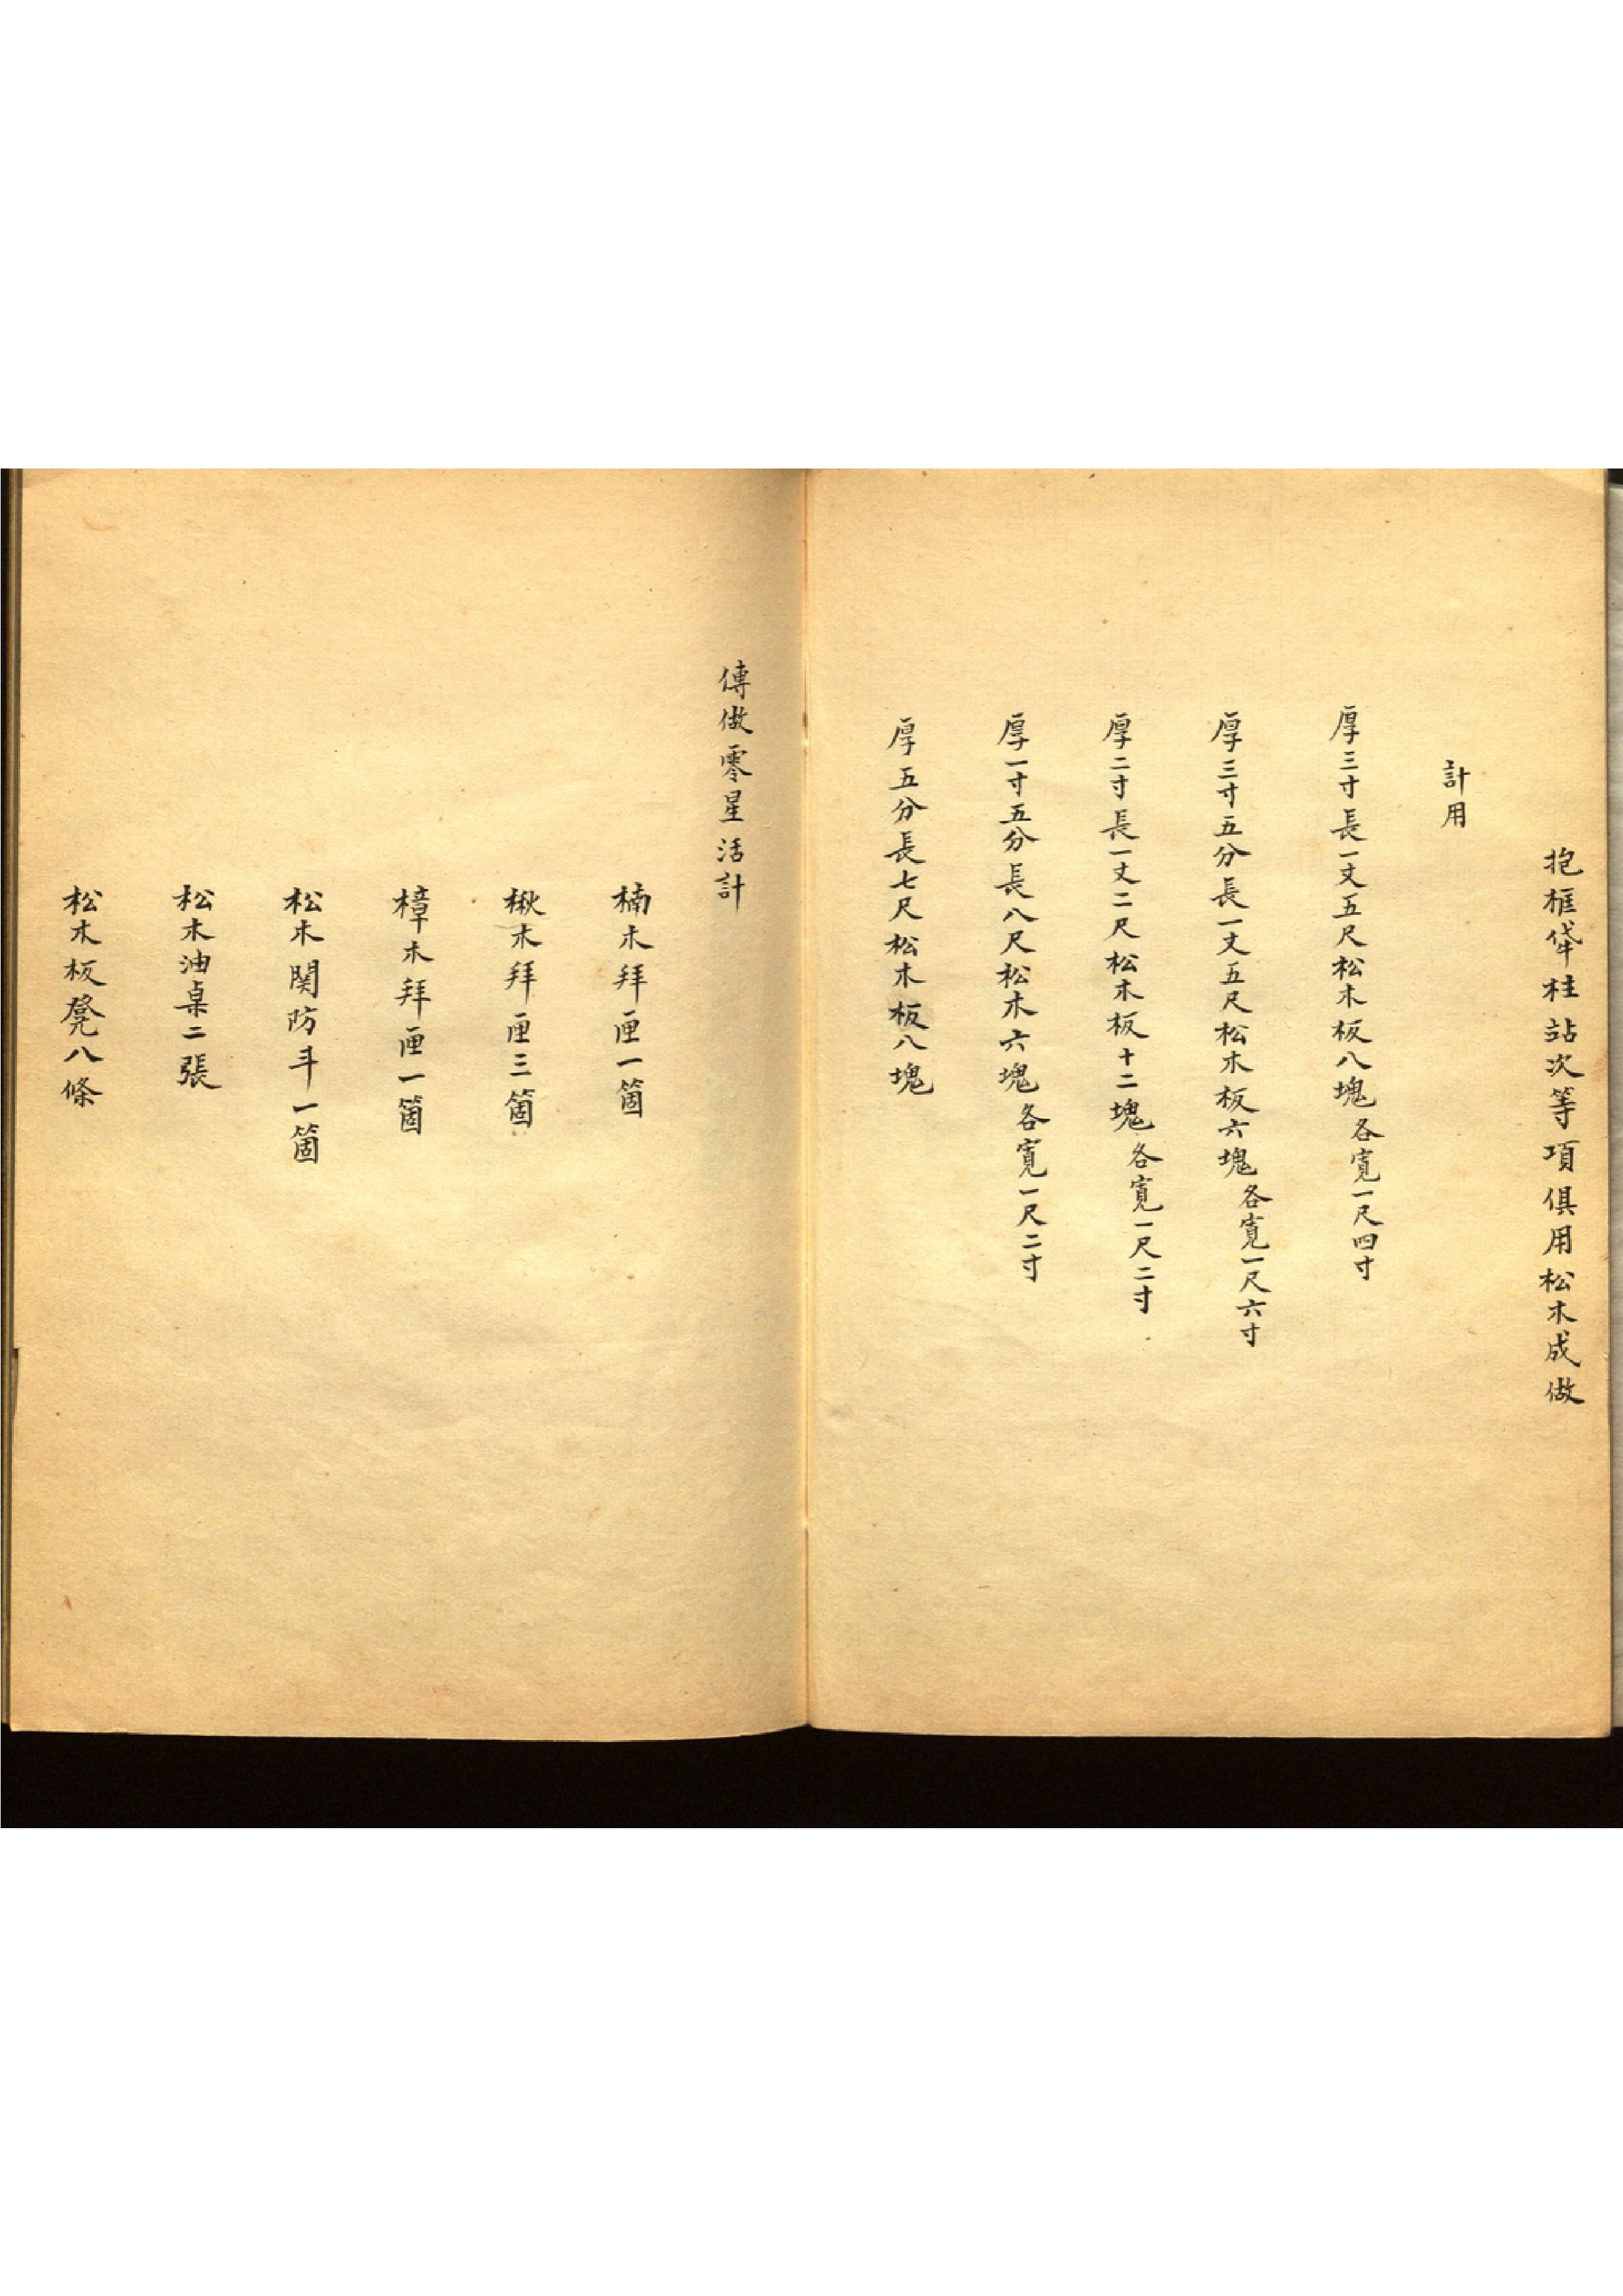 抱框牮柱站次等項俱用松木成做
計用
厚三寸長一丈五尺松木板八塊各寬一尺四寸
厚三寸五分長一丈五尺松木板六塊各寬一尺六寸
厚二寸長一丈二尺松木板十二塊各寬一尺二寸
厚一寸五分長八尺松木六塊各寬一尺二寸
厚五分長七尺松木板八塊
傳做零星活計
楠木拜匣一箇
楸木拜匣三箇
樟木拜匣一箇
松木関防斗一箇
松木油桌二張
松木板凳八條